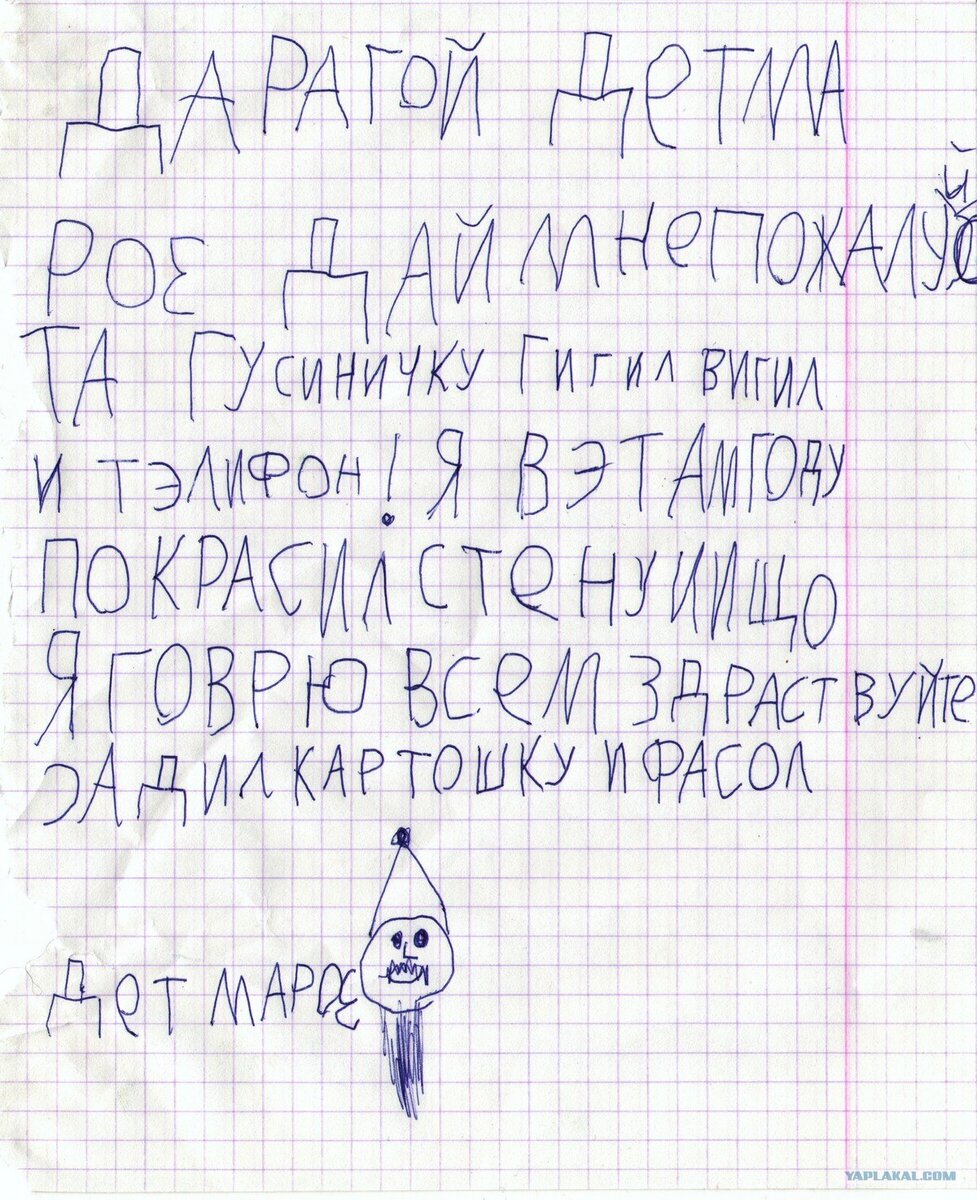 ДАРАГОЙ ДЕТМА
РОЕ ДАЙ МНЕ ПОЖАЛУЙС
ТА ГУСИНИЧКУ ГИГИЛ ВИГИЛ
И ТЭЛИФОН! Я В ЭТАМ ГОДУ
ПОКРАСИЛ СТЕНУ И ИЩО
Я ГОВРЮ ВСЕМ ЗДРАСТВУЙТЕ
ЭАДИЛ КАРТОШКУ И ФАСОЛ
ДЕТ МАРОЕ
YAPLAKAL.COM